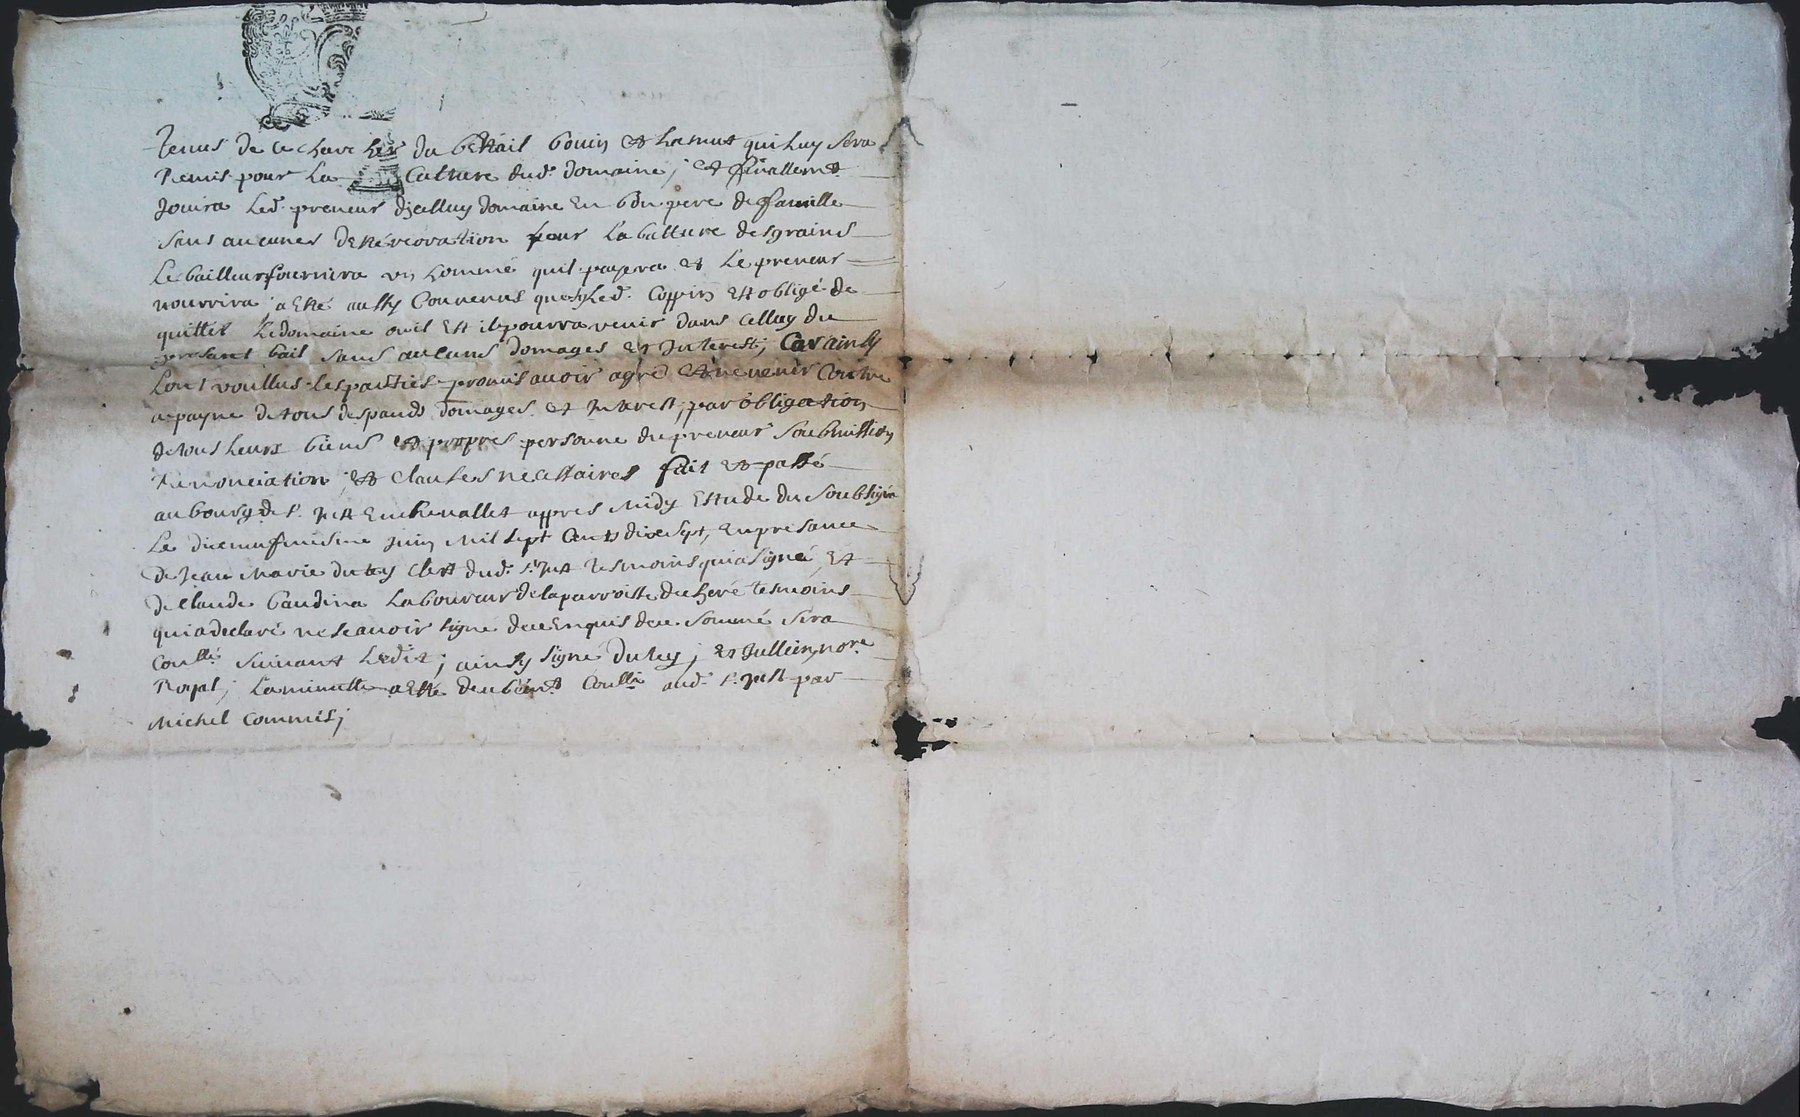 tenus de ce charcher du bestail bovin et la mut qui luy sera
Remis pour la Culture dud. domaine; et finallemt.
Jouira led. preneur dicelluy domaine En bon pere de famille
sans aucunes destereoration pour la batture des grains
le bailleur fournira un homme quil payera et le preneur
nourrira a esté aussy Convenus que sy led. Coppin est obligé de
quitter le domaine ou il est il pourra venir dans celluy du
presant bail sans aucuns domages et Interest; Car ainsy
l'ont voullus les parties promis avoir agré et ne venir Contre
a payne de tous despands domages et Interest; par obligation
de tous leurs biens et propres personne du preneur soubmission
Renonciation, et clauses necessaires fait et passé
au bourg de St. Just En chevallet appres midy Estude du soubsigné
Le dixneufviesme Juin Mil sept Cents dix sept, en presance
de Jean Marie dutey clert dud. st. Just tesmoins qui a signé, et
de claude gaudina laboureur de la parroisse de cheré tesmoins
qui a declaré ne scavoir signé de ce Enquis de ce sommé sera
Conllé suivant Ledit; ainsy signé dutey; et Jullien, nore.
Royal; La minutte a esté deubemt. Conllé aud. st. Just par
Michel Commis;